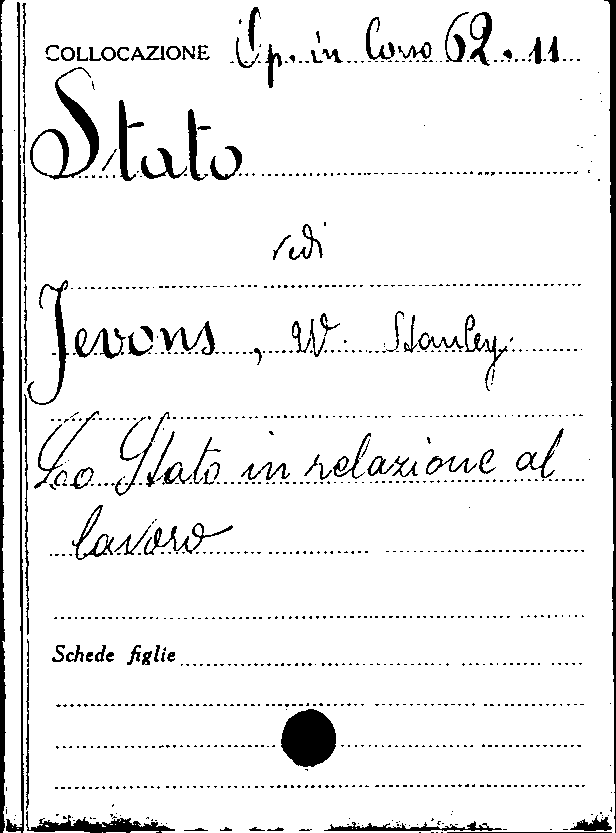 COLLOCAZIONE Op. in Corso 62. 11
Stato
vedi
Jevons, W. Stanley.
Lo Stato in relazione al
lavoro
Schede figlie